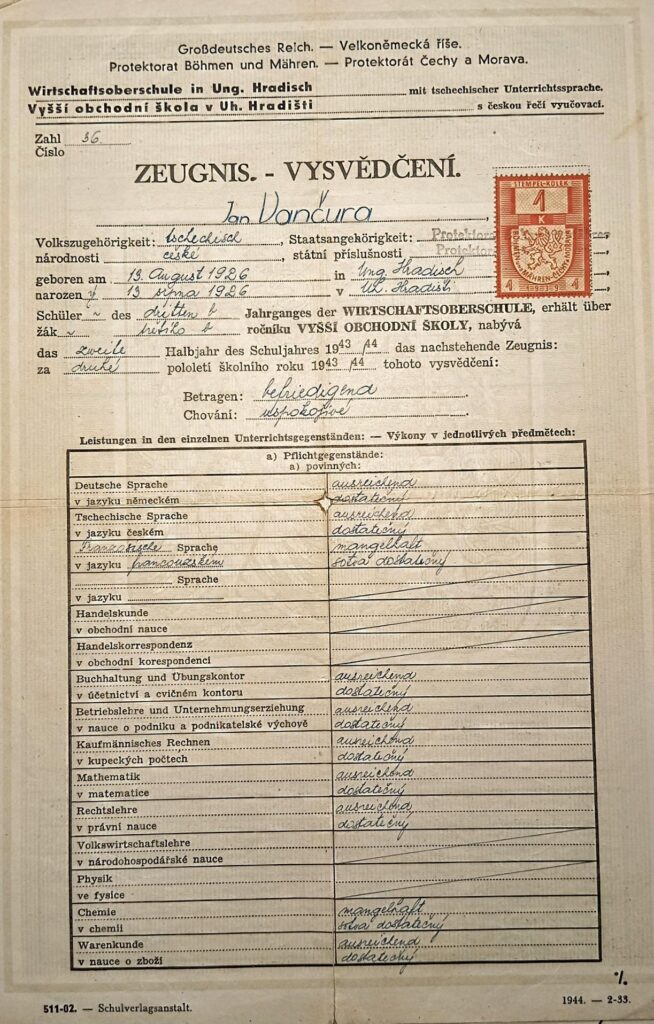 Großdeutsches Reich. — Velkoněmecká říše.
Protektorat Böhmen und Mähren. — Protektorát Čechy a Morava.
Wirtschaftsoberschule in Ung. Hradisch mit tschechischer Unterrichtssprache.
Vyšší obchodní škola v Uh. Hradišti s českou řečí vyučovací.
Zahl 36.
Číslo
ZEUGNIS. - VYSVĚDČENÍ.
STEMPEL-KOLEK
1
K
Jan Vančura
Volkszugehörigkeit: tschechisch, Staatsangehörigkeit: Protektorat
národnosti české, státní příslušnosti Protektor
BÖHMEN u. MÄHREN-ČECHY a MORAVA
geboren am 13. August 1926 in Ung. Hradisch
narozen 13 srpna 1926 v Uh. Hradišti
4 1939 4
Schüler ~ des dritten b Jahrganges der WIRTSCHAFTSOBERSCHULE, erhält über
žák ~ třetího b ročníku VYŠŠÍ OBCHODNÍ ŠKOLY, nabývá
das zweite Halbjahr des Schuljahres 1943/44 das nachstehende Zeugnis:
za druhé pololetí školního roku 1943/44 tohoto vysvědčení:
Betragen: befriedigend.
Chování: uspokojivé.
Leistungen in den einzelnen Unterrichtsgegenständen: — Výkony v jednotlivých předmětech:
a) Pflichtgegenstände:
a) povinných:
Deutsche Sprache ausreichend
v jazyku německém dostatečný
Tschechische Sprache ausreichend
v jazyku českém dostatečný
Französische Sprache mangelhaft
v jazyku francouzském sotva dostatečný
Sprache
v jazyku
Handelskunde
v obchodní nauce
Handelskorrespondenz
v obchodní korespondenci
Buchhaltung und Übungskontor ausreichend
v účetnictví a cvičném kontoru dostatečný
Betriebslehre und Unternehmungserziehung ausreichend
v nauce o podniku a podnikatelské výchově dostatečný
Kaufmännisches Rechnen ausreichend
v kupeckých počtech dostatečný
Mathematik ausreichend
v matematice dostatečný
Rechtslehre ausreichend
v právní nauce dostatečný
Volkswirtschaftslehre
v národohospodářské nauce
Physik
ve fysice
Chemie mangelhaft
v chemii sotva dostatečný
Warenkunde ausreichend
v nauce o zboží dostatečný
·/.
511-02. — Schulverlagsanstalt. 1944. — 2-33.